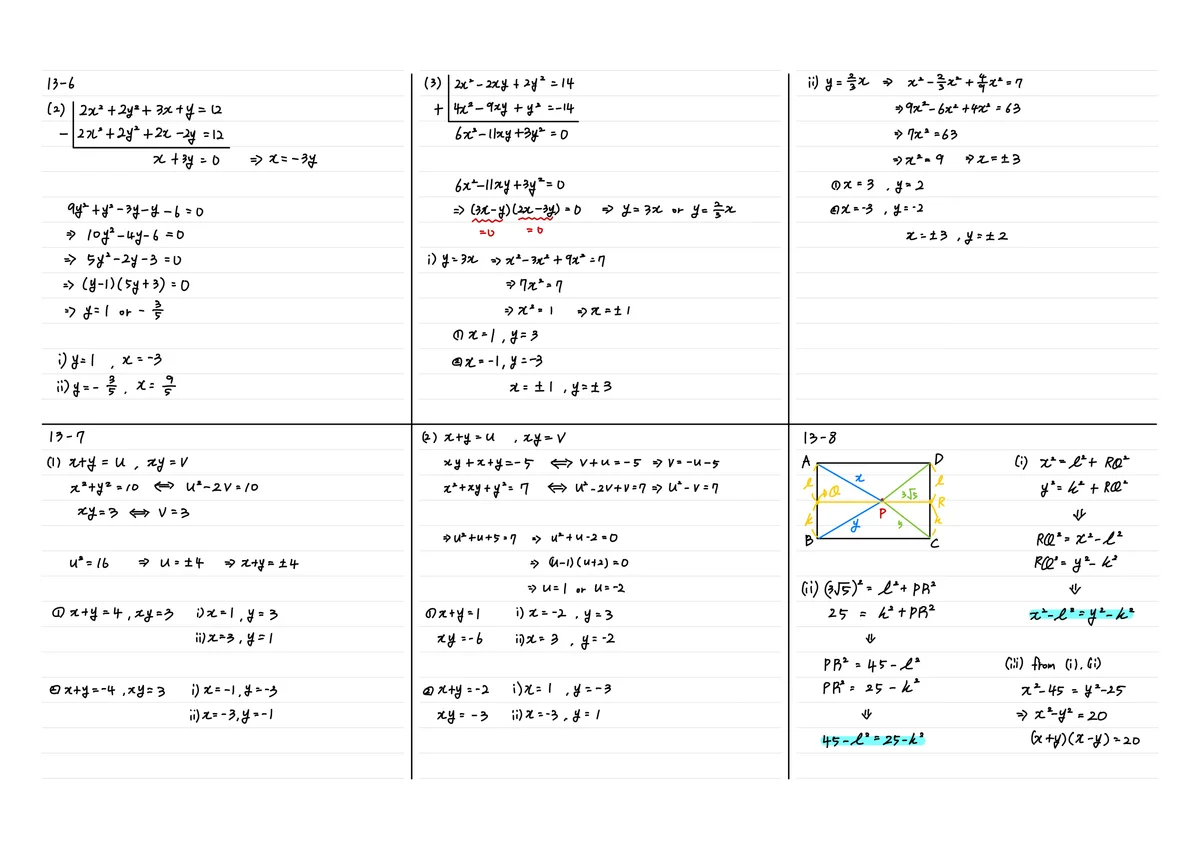 13-6
(2) 2x²+2y²+3x+y=12
- 2x²+2y²+2x-2y=12
x+3y=0 ⇒ x=-3y
9y²+y²-3y-y-6=0
⇒ 10y²-4y-6=0
⇒ 5y²-2y-3=0
⇒ (y-1)(5y+3)=0
⇒ y=1 or -3/5
i) y=1, x=-3
ii) y=-3/5, x=9/5
(3) 2x²-2xy+2y²=14
+ 4x²-9xy+y²=-14
6x²-11xy+3y²=0
6x²-11xy+3y²=0
⇒ (3x-y)(2x-3y)=0 ⇒ y=3x or y=2/3x
=0 =0
i) y=3x ⇒ x²-3x²+9x²=7
⇒ 7x²=7
⇒ x²=1 ⇒ x=±1
① x=1, y=3
② x=-1, y=-3
x=±1, y=±3
ii) y=2/3x ⇒ x²-2/3x²+4/9x²=7
⇒ 9x²-6x²+4x²=63
⇒ 7x²=63
⇒ x²=9 ⇒ x=±3
① x=3, y=2
② x=-3, y=-2
x=±3, y=±2
13-7
(1) x+y=u, xy=v
x²+y²=10 ⇔ u²-2v=10
xy=3 ⇔ v=3
u²=16 ⇒ u=±4 ⇒ x+y=±4
① x+y=4, xy=3 i) x=1, y=3
ii) x=3, y=1
② x+y=-4, xy=3 i) x=-1, y=-3
ii) x=-3, y=-1
(2) x+y=u, xy=v
xy+x+y=-5 ⇔ v+u=-5 ⇒ v=-u-5
x²+xy+y²=7 ⇔ u²-2v+v=7 ⇒ u²-v=7
⇒ u²+u+5=7 ⇒ u²+u-2=0
⇒ (u-1)(u+2)=0
⇒ u=1 or u=-2
① x+y=1 i) x=-2, y=3
xy=-6 ii) x=3, y=-2
② x+y=-2 i) x=1, y=-3
xy=-3 ii) x=-3, y=1
13-8
A D
l x l
Q 3√5 R
P
k y 5 k
B C
(i) x²=l²+RQ²
y²=k²+RQ²
⇓
RQ²=x²-l²
RQ²=y²-k²
⇓
x²-l²=y²-k²
(ii) (3√5)²=l²+PR²
25=k²+PR²
⇓
PR²=45-l²
PR²=25-k²
⇓
45-l²=25-k²
(iii) from (i), (ii)
x²-45=y²-25
⇒ x²-y²=20
(x+y)(x-y)=20